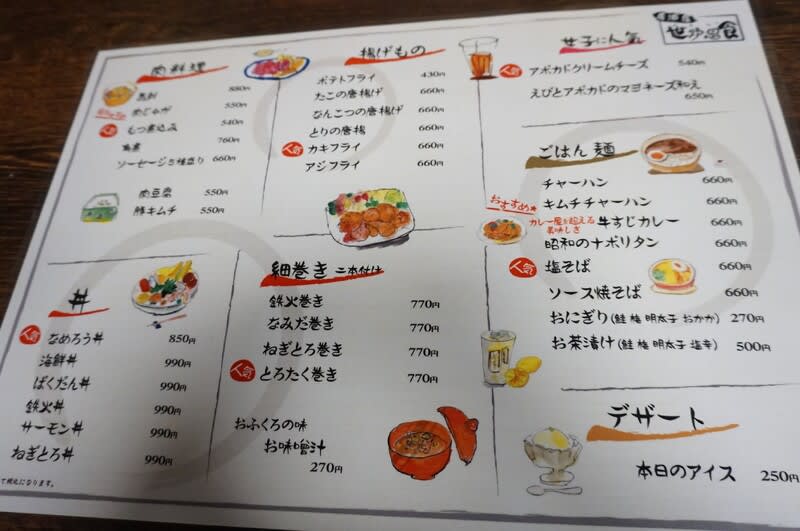 肉料理
馬刺 880円
おすすめ 肉じゃが 550円
人気 もつ煮込み 540円
角煮 760円
ソーセージ5種盛り 660円
肉豆腐 550円
豚キムチ 550円
揚げもの
ポテトフライ 430円
たこの唐揚げ 660円
なんこつの唐揚げ 660円
とりの唐揚 660円
人気 カキフライ 660円
アジフライ 660円
女子に人気
人気 アボカドクリームチーズ 540円
えびとアボカドのマヨネーズ和え
650円
ごはん 麺
チャーハン 660円
おすすめ キムチチャーハン 660円
カレー屋を超える
美味しさ
牛すじカレー 660円
昭和のナポリタン 660円
人気 塩そば 660円
ソース焼そば 660円
おにぎり(鮭 梅 明太子 おかか) 270円
お茶漬け(鮭 梅 明太子 塩辛) 500円
丼
人気 なめろう丼 850円
海鮮丼 990円
ばくだん丼 990円
鉄火丼 990円
サーモン丼 990円
ねぎとろ丼 990円
て税込になります。
細巻き 二本付け
鉄火巻き 770円
なみだ巻き 770円
ねぎとろ巻き 770円
人気 とろたく巻き 770円
おふくろの味
お味噌汁
270円
デザート
本日のアイス 250円